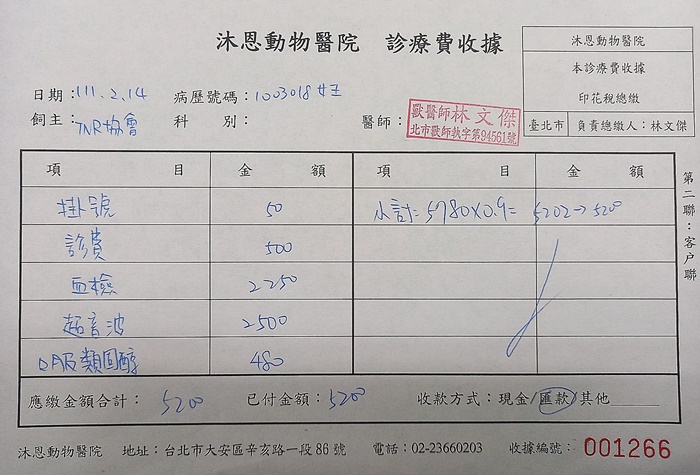 沐恩動物醫院 診療費收據
沐恩動物醫院
本診療費收據
印花稅總繳
臺北市 負責總繳人：林文傑
日期：111.2.14 病歷號碼：1003018
飼主：TNR協會 科 別： 醫師：
獸醫師林文傑
北市獸師執字第94561號
項 目 金 額 項 目 金 額
掛號 50 小計=5780×0.9= 5202→5200
診費 500
血檢 2250
超音波 2500
類固醇 480
應繳金額合計：5200 已付金額：5200 收款方式：現金/匯款/其他
第二聯：客戶聯
沐恩動物醫院 地址：台北市大安區辛亥路一段86號 電話：02-23660203 收據編號：001266